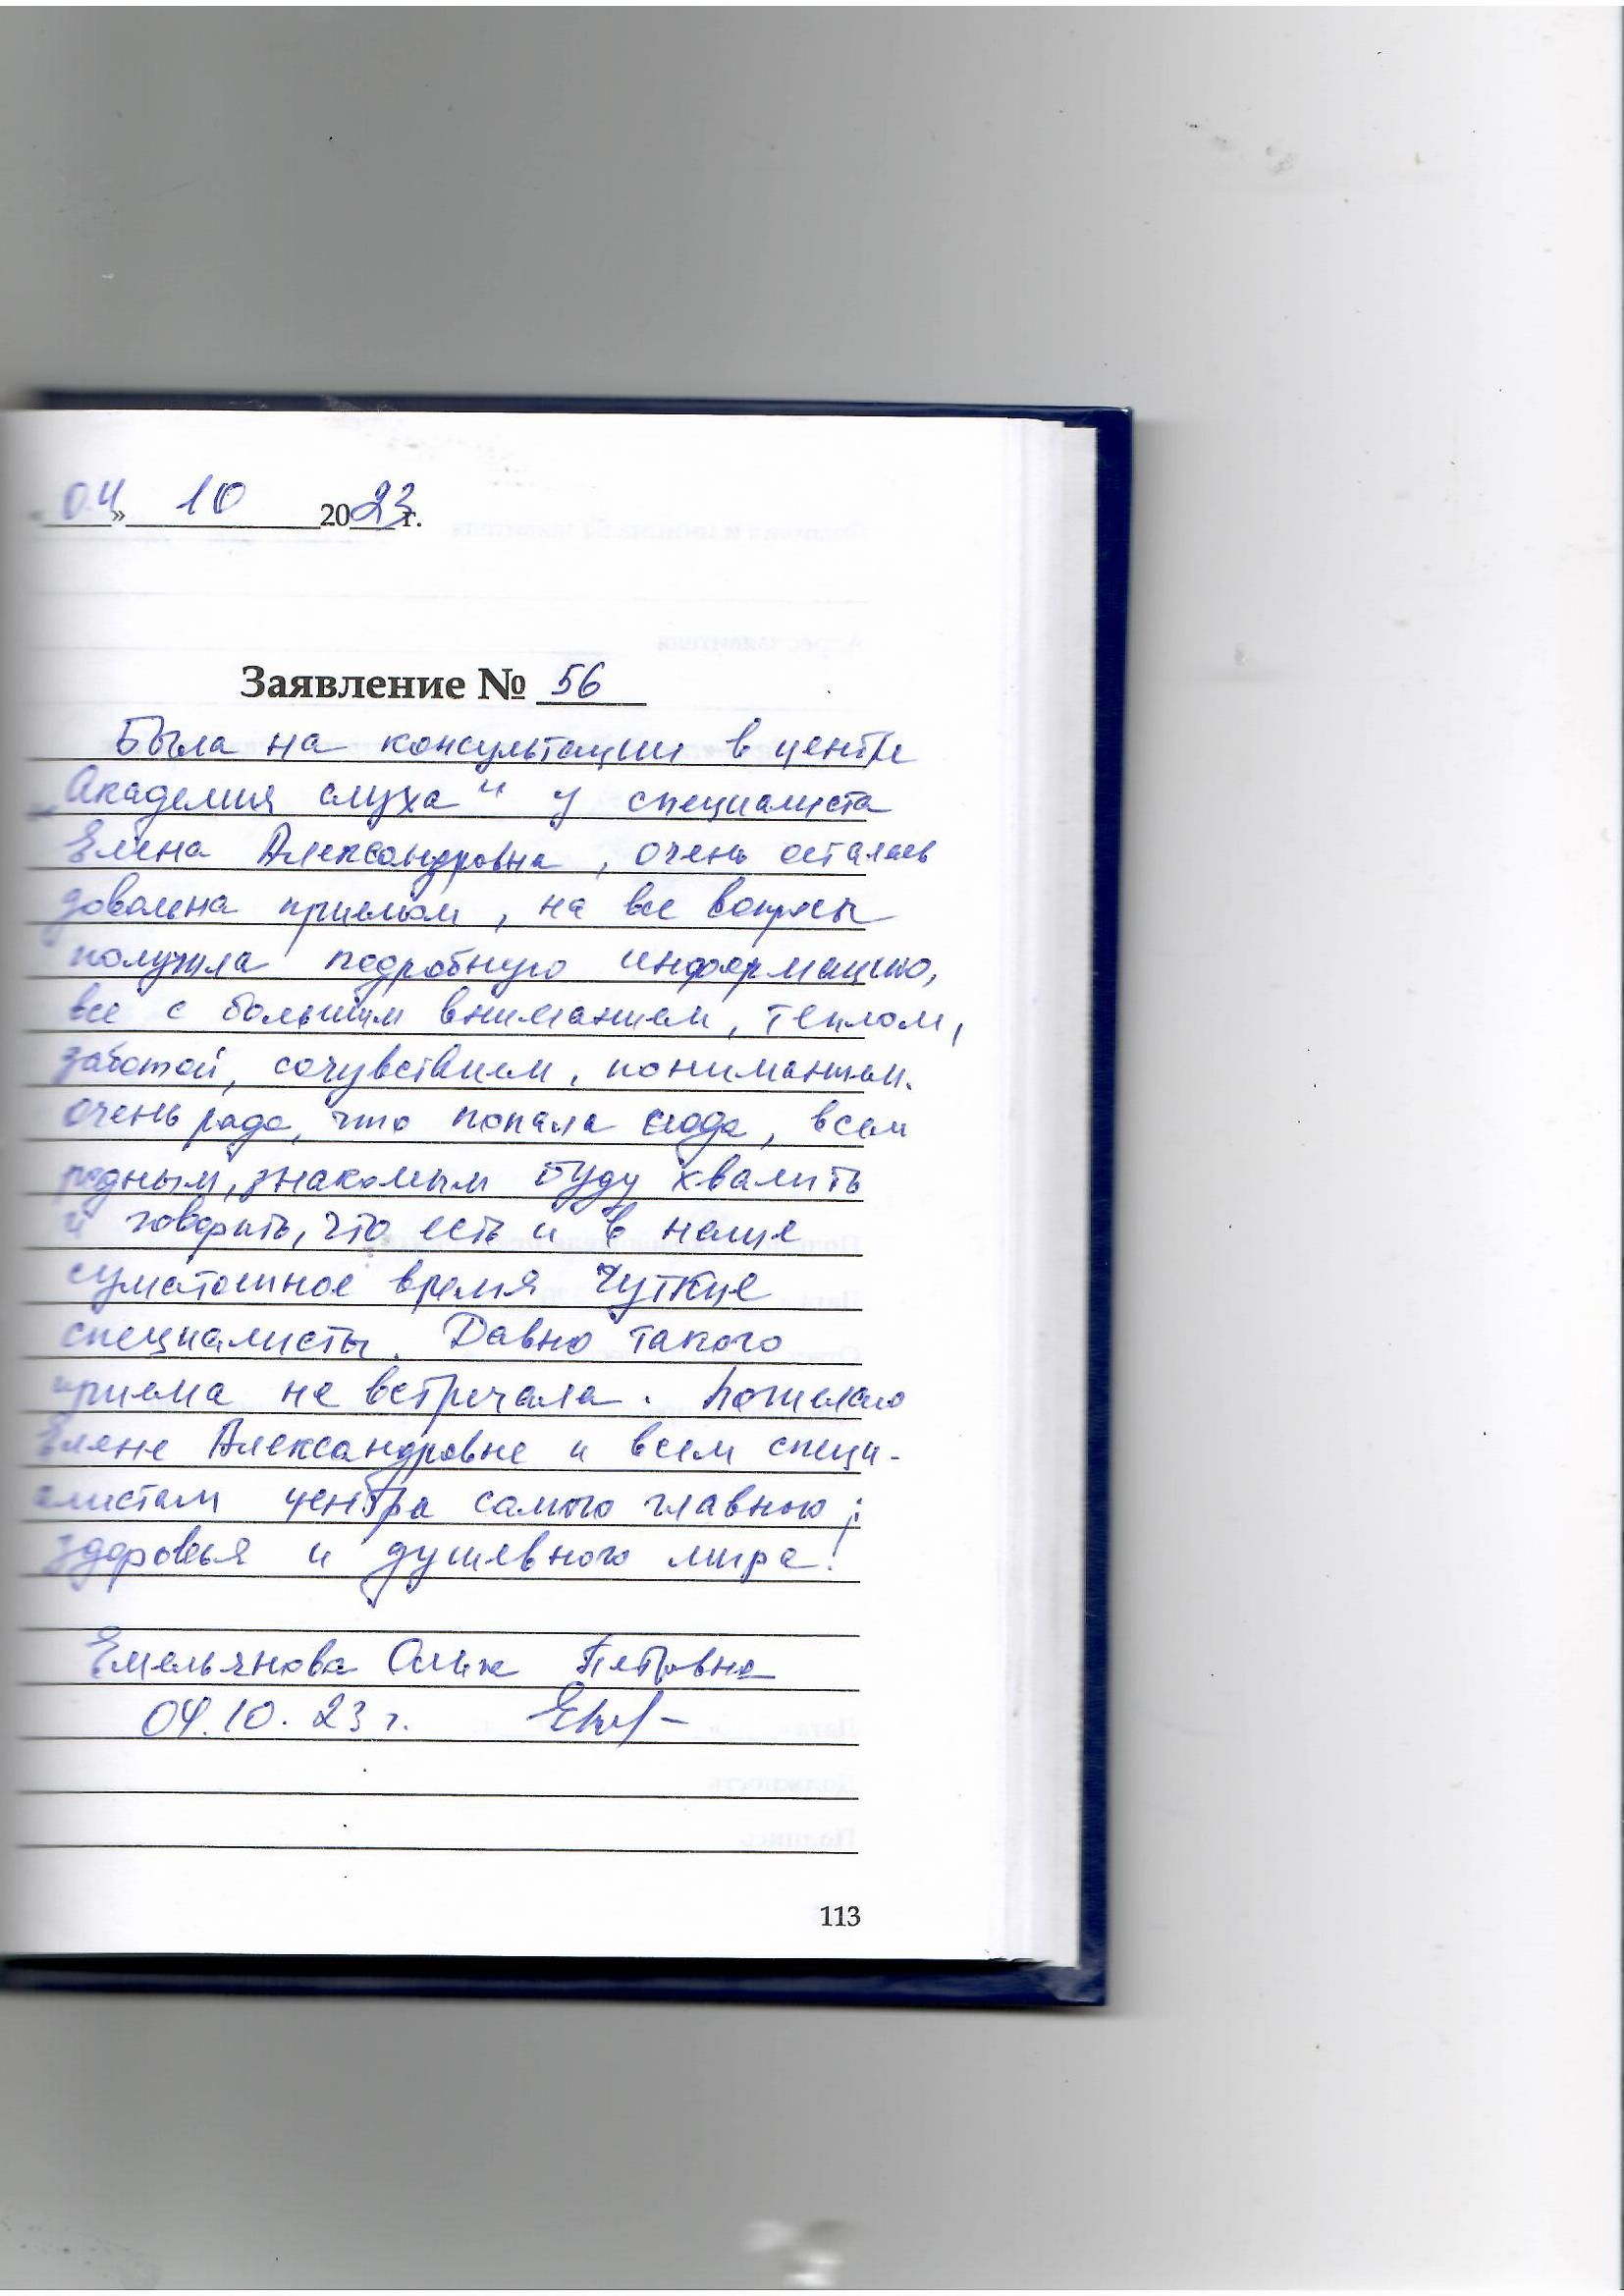 «04» 10 2023 г.
Заявление № 56
Была на консультации в центре
„Академия слуха" у специалиста
Елена Александровна, очень осталась
довольна приемом, на все вопросы
получила подробную информацию,
все с большим вниманием, теплом,
заботой, сочувствием, пониманием.
очень рада, что попала сюда, всем
родным, знакомым буду хвалить
и говорить, что есть и в наше
суматошное время чуткие
специалисты. Давно такого
приема не встречала. Пожелаю
Елене Александровне и всем специ-
алистам центра самого главного:
здоровья и душевного мира!
Емельянова Петровна
04.10.23 г.
113